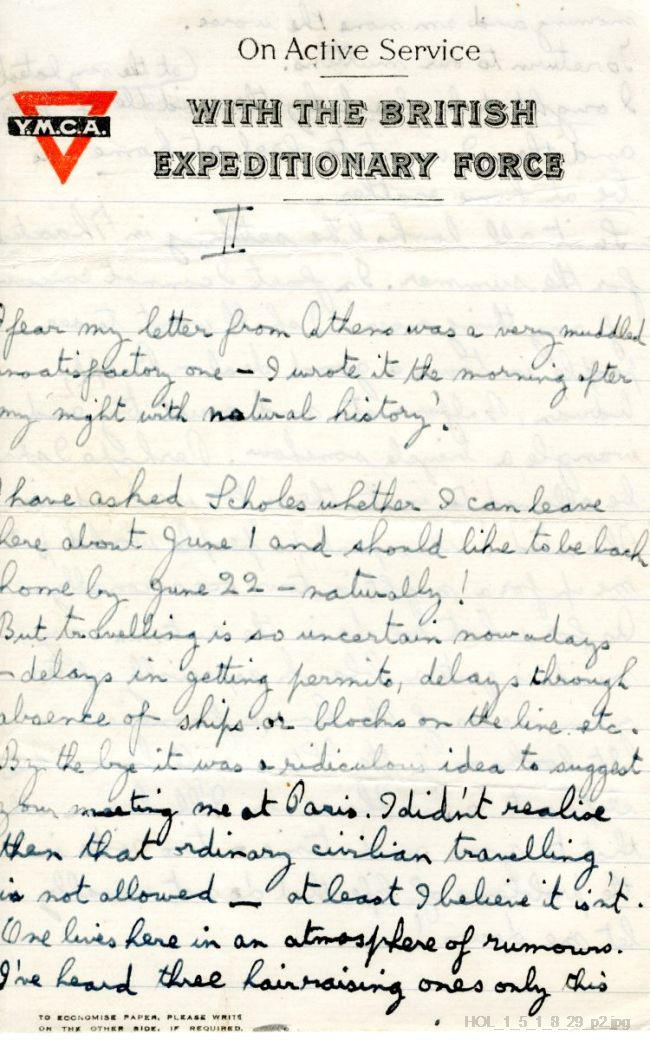 On Active Service
Y.M.C.A.
WITH THE BRITISH
EXPEDITIONARY FORCE
II
I fear my letter from Athens was a very muddled
unsatisfactory one – I wrote it the morning after
my 'night with natural history'.
I have asked Scholes whether I can leave
here about June 1 and should like to be back
home by June 22 – naturally!
But travelling is so uncertain nowadays
– delays in getting permits, delays through
absence of ships or blocks on the line etc.
By the bye it was a ridiculous idea to suggest
your meeting me at Paris. I didn't realise
then that 'ordinary civilian travelling'
is not allowed – at least I believe it isn't.
One lives here in an atmosphere of rumours.
I've heard three hairraising ones only this
TO ECONOMISE PAPER, PLEASE WRITE
ON THE OTHER SIDE, IF REQUIRED.
HOL_1_5_1_8_29_p2.jpg